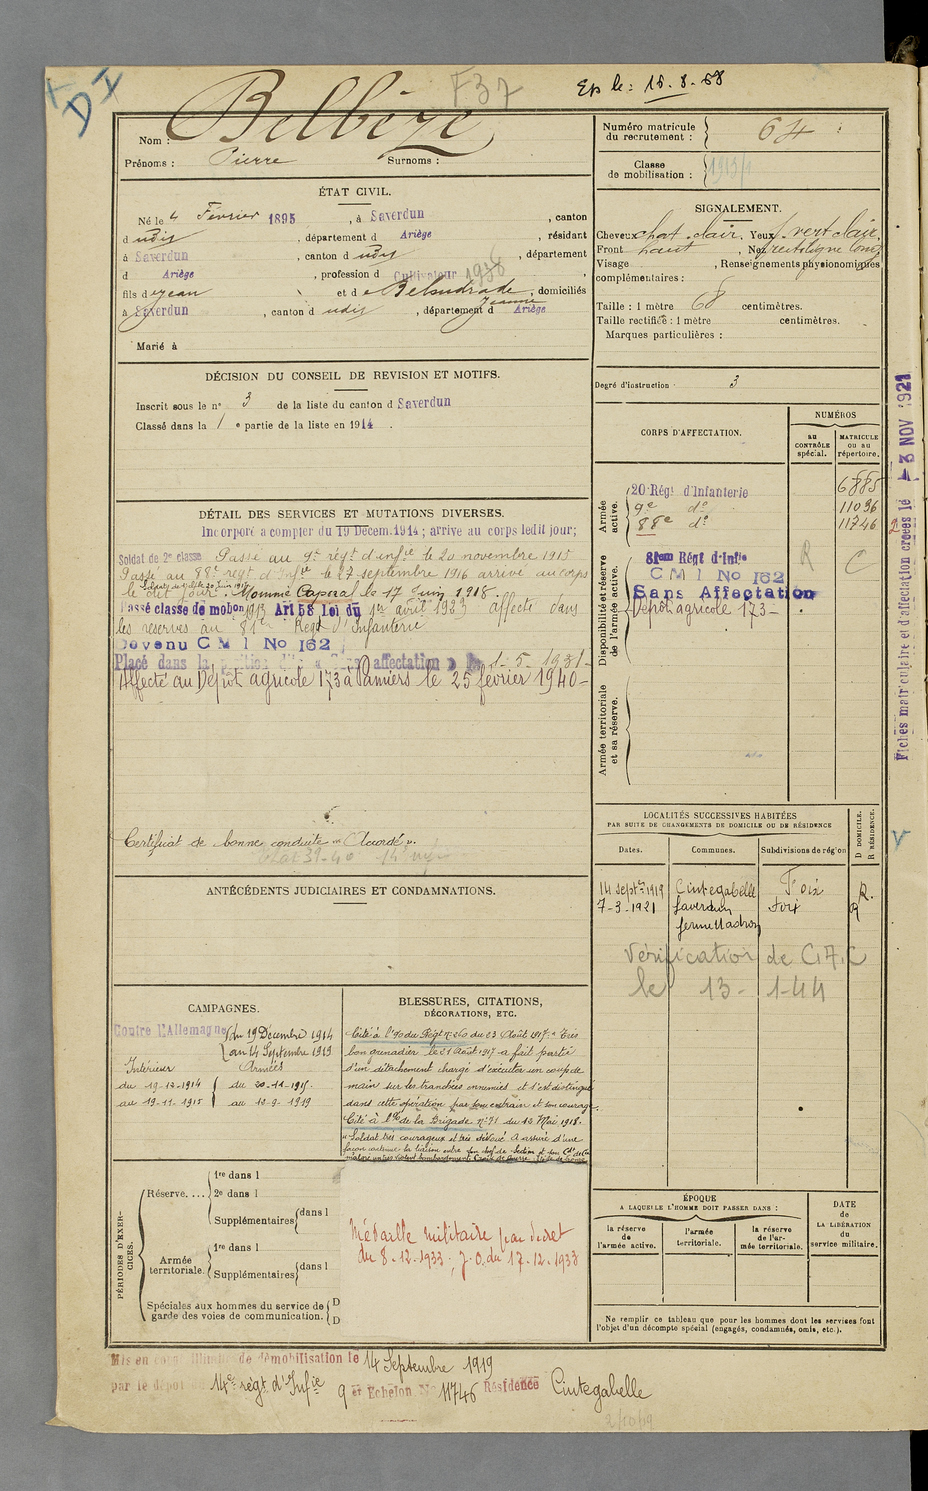 F37
Ex le: 15.8.58
DI
Nom : Belbèze
Prénoms : Pierre Surnoms :
Numéro matricule du recrutement : 64
Classe de mobilisation : 1913
ÉTAT CIVIL.
Né le 4 Février 1895, à Saverdun, canton
d udit, département d Ariège, résidant
à Saverdun, canton d udit, département
d Ariège, profession d Cultivateur 1938
fils d e Jean et d e Belsudrade Jeanne, domiciliés
à Saverdun, canton d udit, département d Ariège
Marié à
SIGNALEMENT.
Cheveux chat. clair. Yeux vert clair.
Front haut, Nez rectiligne long
Visage , Renseignements physionomiques
complémentaires :
Taille : 1 mètre 68 centimètres.
Taille rectifiée : 1 mètre centimètres.
Marques particulières :
DÉCISION DU CONSEIL DE REVISION ET MOTIFS.
Inscrit sous le n° 3 de la liste du canton d Saverdun
Classé dans la 1 e partie de la liste en 1914.
Degré d'instruction : 3
CORPS D'AFFECTATION.
NUMÉROS
au CONTRÔLE spécial.
MATRICULE ou au répertoire.
Armée active.
20 Régt d'Infanterie 6885
9e do 11096
88e do 11746
Disponibilité et réserve de l'armée active.
81em Régt d'Infie R C
CMI No 162
Sans Affectation
Dépot agricole 173 –
Armée territoriale et sa réserve.
DÉTAIL DES SERVICES ET MUTATIONS DIVERSES.
Incorporé a compter du 19 Décem. 1914; arrive au corps ledit jour;
Soldat de 2e classe Passé au 9e régt d'infie le 20 novembre 1915
Passé au 88e régt d'Infie le 27 septembre 1916 arrivé au corps
le dit jour. Nommé Caporal le 17 Juin 1918.
Passé classe de mobon 1913 Art 58 Loi du 1er avril 1923 affecté dans
les réserves au 81em Régt d'Infanterie
Devenu CMI No 162
Placé dans la position dite sans affectation le 1-5-1931-
Affecté au Dépôt agricole 173 à Pamiers le 25 février 1940-
Certificat de bonne conduite "Accordé".
Fiches matriculaire et d'affectation créées le 3 NOV 1921
ANTÉCÉDENTS JUDICIAIRES ET CONDAMNATIONS.
LOCALITÉS SUCCESSIVES HABITÉES
PAR SUITE DE CHANGEMENTS DE DOMICILE OU DE RÉSIDENCE
Dates. Communes. Subdivisions de région D DOMICILE. R RÉSIDENCE.
14 septre 1919 Cintegabelle Foix R.
7-3-1921 Saverdun Foix R
Vérification de C.A.C
le 13-1-44
CAMPAGNES.
Contre l'Allemagne du 19 Décembre 1914
au 14 Septembre 1919
Intérieur Armées
du 19-12-1914 du 20-11-1915.
au 19-11-1915 au 12-9-1919
BLESSURES, CITATIONS,
DÉCORATIONS, ETC.
Cité à l'O du Régt n° 260 du 23 Août 1917: "Très
bon grenadier le 21 Août 1917 a fait partie
d'un détachement chargé d'exécuter un coup de
main sur les tranchées ennemies et s'est distingué
dans cette opération par son entrain et son courage.
Cité à l'O de la Brigade n° 71 du 12 Mai 1918.
"Soldat très courageux et très dévoué. A assuré d'une
façon continue la liaison entre son chef de Section et son Ct de Cie
malgré un très violent bombardement. Croix de Guerre
Médaille militaire par décret
du 8.12.1933; J.O. du 17.12.1933
PÉRIODES D'EXERCICES.
Réserve.... 1re dans l
2e dans l
Supplémentaires dans l
Armée territoriale. 1re dans l
Supplémentaires dans l
Spéciales aux hommes du service de garde des voies de communication. D D
ÉPOQUE
A LAQUELLE L'HOMME DOIT PASSER DANS :
la réserve de l'armée active.
l'armée territoriale.
la réserve de l'armée territoriale.
DATE de LA LIBÉRATION du service militaire.
Ne remplir ce tableau que pour les hommes dont les services font
l'objet d'un décompte spécial (engagés, condamnés, omis, etc.).
Mis en congé illimité de démobilisation le 14 Septembre 1919
par le dépôt du 14e régt d'Infie 9 er Echelon No 11746 Résidence Cintegabelle